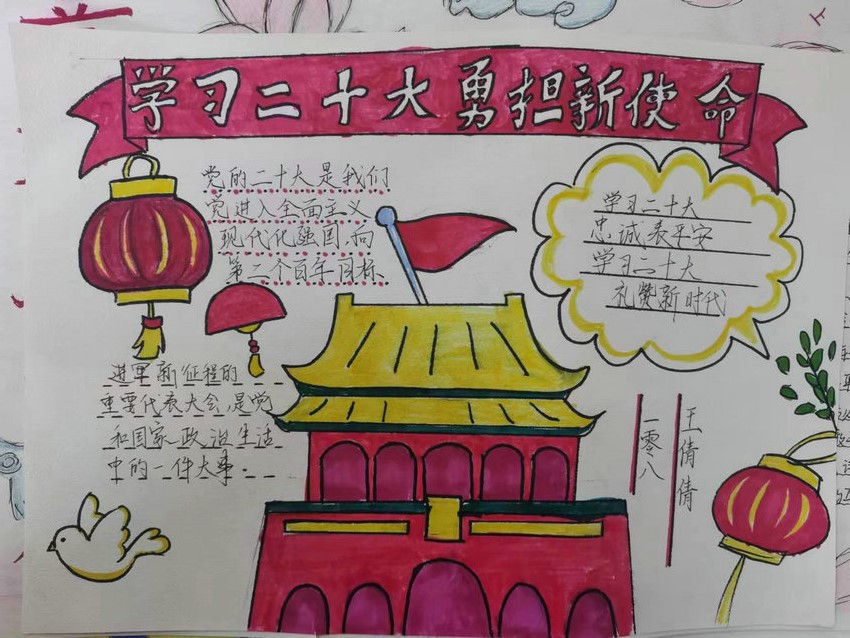 学习二十大勇担新使命
党的二十大是我们
党进入全面主义
现代化强国,向
第二个百年目标
进军新征程的
重要代表大会,是党
和国家政治生活
中的一件大事.
学习二十大
忠诚表平安
学习二十大
礼赞新时代
一零八
王倩倩